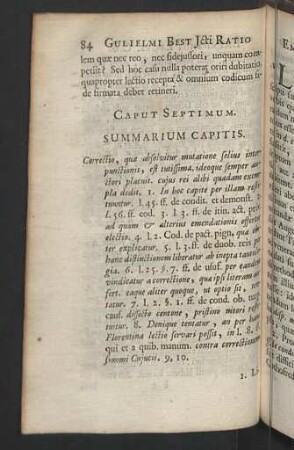 84 GULIELMI BEST Jcti RATIO
lem quæ nec reo, nec fidejussori, unquam com-
petiit? Sed hoc casu nulla poterat oriri dubitatio,
quapropter lectio recepta & omnium codicum fi-
de firmata debet retineri.
CAPUT SEPTIMUM.
SUMMARIUM CAPITIS.
Correctio, quæ absolvitur mutatione solius inter-
punctionis, est tutissima, ideoque semper au-
ctori placuit. cujus rei alibi quædam exem-
pla dedit. 1. In hoc capite per illam resti-
tuuntur. l. 45. ff. de condit. et demonst. 2.
l. 56. ff. cod. 3. l. 3. ff. de itin. act. pr.
ad quam & alterius emendationis offertur
electio. 4. l. 2. Cod. de pact. pign. quæ ali-
ter explicatur. 5. l. 3. ff. de duob. reis per
hanc distinctionem liberatur ab inepta tautolo-
gia. 6. l. 25. §. 7. ff. de usuf. per eandem
vindicatur a correctione, quæ ipsi literam au-
fert. eaque aliter quoque, ut optio sit,
tatur. 7. l. 2. §. 1. ff. de cond. ob. turp.
caus. dissecto centone, pristino nitori resti-
tuitur. 8. Denique tentatur, an per hanc
Florentina lectio servari possit, in l. 8. ff.
qui et a quib. manum. contra correctionem
summi Cujacii. 9. 10.